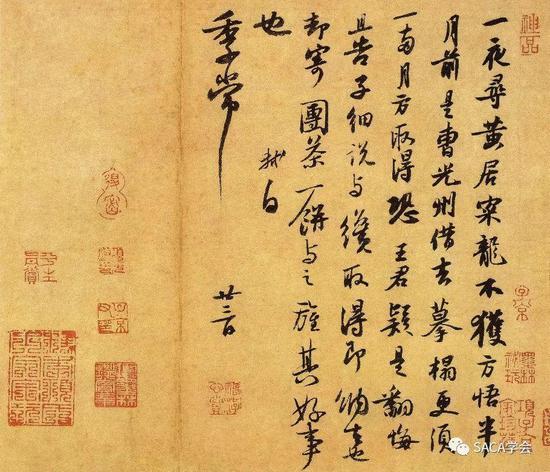 神品
一夜尋黃居寀龍不獲方悟半
月前是曹光州借去摹搨更須
一兩月方取得恐王君疑是翻悔
且告子細說与纔取得即納去也
却寄團茶一餅与之旌其好事
也 軾白
季常 廿三日
子京
SACA学会